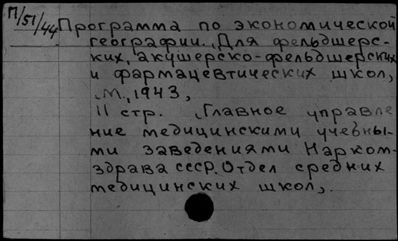 П/51/44
Программа по экономической
географии. „Для фельдшерс-
ких, акушерско-фельдшерских
и фармацевтических школ„
„М„, 1943,
11 стр. „Главное управле
ние медицинскими учебны-
ми заведениями Нарком-
здрава СССР. Отдел средних
медицинских школ„.